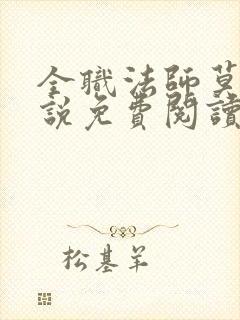 全職法師莫
說免費閱讀
松基羊